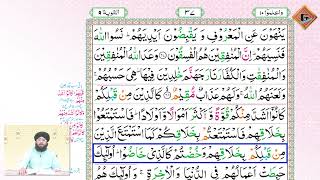 واعلموا ١٠
٣٧
التوبة ٩
يَنْهَوْنَ عَنِ الْمَعْرُوْفِ وَ يَقْبِضُوْنَ اَيْدِيَهُمْ ؕ نَسُوا اللّٰهَ
فَنَسِيَهُمْ ؕ اِنَّ الْمُنٰفِقِيْنَ هُمُ الْفٰسِقُوْنَ ۝ وَعَدَ اللّٰهُ الْمُنٰفِقِيْنَ
وَ الْمُنٰفِقٰتِ وَ الْكُفَّارَ نَارَ جَهَنَّمَ خٰلِدِيْنَ فِيْهَا ؕ هِيَ حَسْبُهُمْ ۚ
وَ لَعَنَهُمُ اللّٰهُ ۚ وَ لَهُمْ عَذَابٌ مُّقِيْمٌ ۝ كَالَّذِيْنَ مِنْ قَبْلِكُمْ
كَانُوْۤا اَشَدَّ مِنْكُمْ قُوَّةً وَّ اَكْثَرَ اَمْوَالًا وَّ اَوْلَادًا ؕ فَاسْتَمْتَعُوْا
بِخَلَاقِهِمْ فَاسْتَمْتَعْتُمْ بِخَلَاقِكُمْ كَمَا اسْتَمْتَعَ الَّذِيْنَ
مِنْ قَبْلِكُمْ بِخَلَاقِهِمْ وَ خُضْتُمْ كَالَّذِيْ خَاضُوْا ؕ اُولٰٓىِٕكَ
حَبِطَتْ اَعْمَالُهُمْ فِي الدُّنْيَا وَ الْاٰخِرَةِ ۚ وَ اُولٰٓىِٕكَ هُمُ